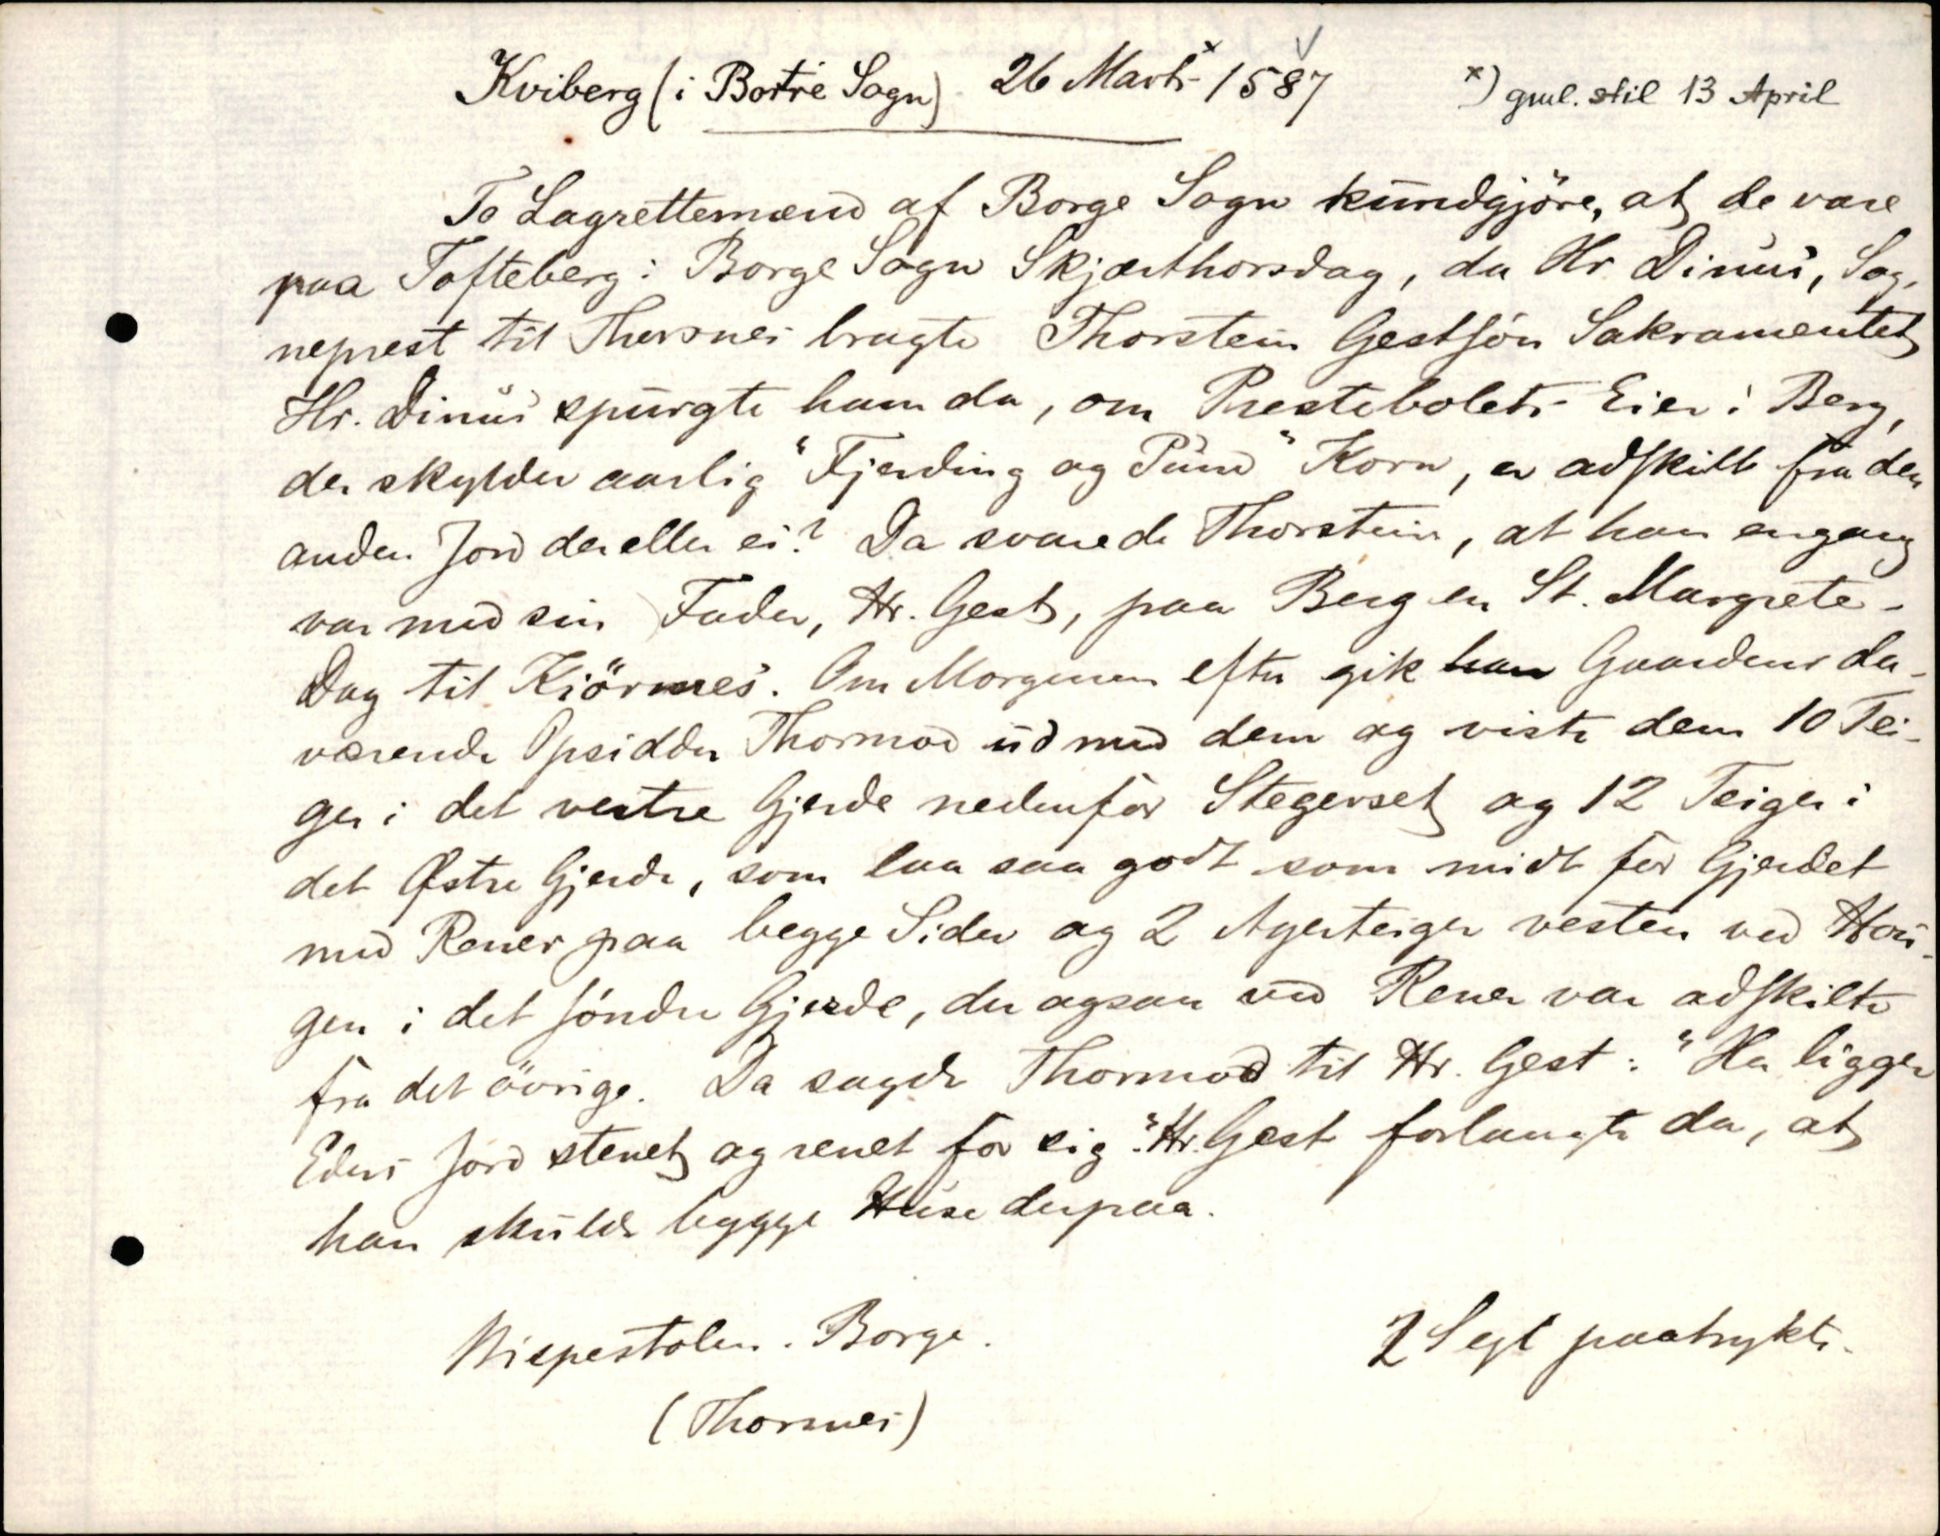 Kviberg (i Borre Sogn) 26 Marts x 1587 x) gml. stil 13 April
To Lagrettemænd af Borge Sogn kundgjøre, at de vare
paa Tofteberg i Borge Sogn Skjærthorsdag, da Hr Dinus, Sog-
neprest til Thorsnes bragte Thorstein Gestsön Sakramentet
Hr. Dinus spurgte ham da, om Prestebolets Eier i Berg,
der skylder aarlig "Fjerding og Pund" Korn, er adskilt fra den
anden Jord der eller ei? Da svarede Thorstein, at han engang
var med sin Fader, Hr. Gest, paa Berg en St. Margrete-
Dag til Kiörmes. Om Morgenen efter gik han Gaardens da-
værende Opsidder Thormod ud med dem og viste dem 10 Tei-
ger i det vestre Gjerde nedenfor Stegerset og 12 Teiger i
det Østre Gjerde, som laa saa godt som midt for Gjerdet
med Rener paa begge Sider og 2 Agerteiger vesten ved Hau-
gen i det söndre Gjerde, der ogsaa ved Rener var adskilte
fra det övrige. Da sagde Thormod til Hr. Gest: "Her ligger
Eders Jord stenet og renet for sig". Hr. Gest forlangte da, at
han skulde bygge Huse derpaa.
Bispestolen. Borge. 2 Segl paatrykte.
(Thorsnes)